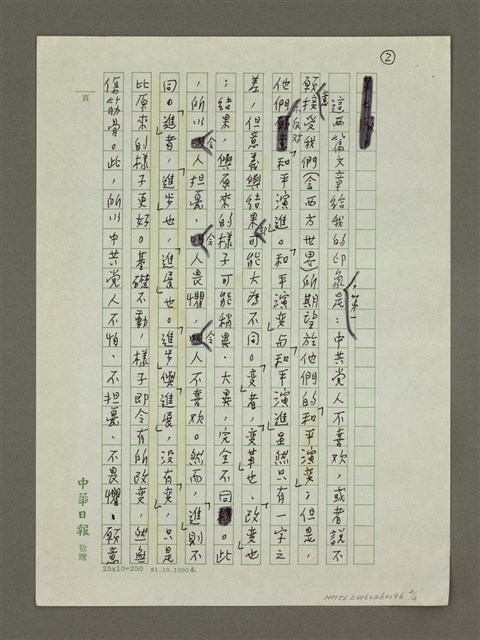 ②
這兩篇文章給我的印象是：第一，中共党人不喜欢，或者說不
願意接受我們(含西方世界)所期望於他們的「和平演变」；但是，
他們不反对「和平演進」。和平演变与和平演進虽然只有一字之
差，但意義與結果卻可能大為不同。变者，「变革也、改变也」
；結果，與原來的樣子可能稍異、大異，完全不同。此
，所以令人担憂、令人畏懼，令人不喜欢。然而，「進」則不
同。進者，「進步也，進展也。」進步與進展，沒有「变」，只是
比原來的樣子更好。基礎不動，樣子即令有所改变，然無
傷筋骨。此，所以中共党人不怕、不担憂、不畏懼、願意
頁
中華日報 敬贈
25x10=250 81.10.1000本